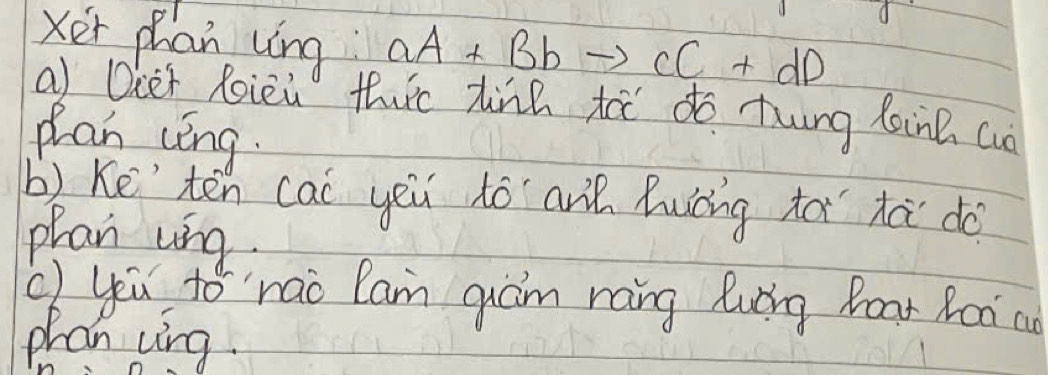 Xét phản ứng: aA + Bb → cC + dD
a) Viết biểu thức tính tốc độ trung bình của
phản ứng.
b) Kể tên các yếu tố ảnh hưởng tới tốc độ
phản ứng.
c) Yếu tố nào làm giảm năng lượng hoạt hoá của
phản ứng.